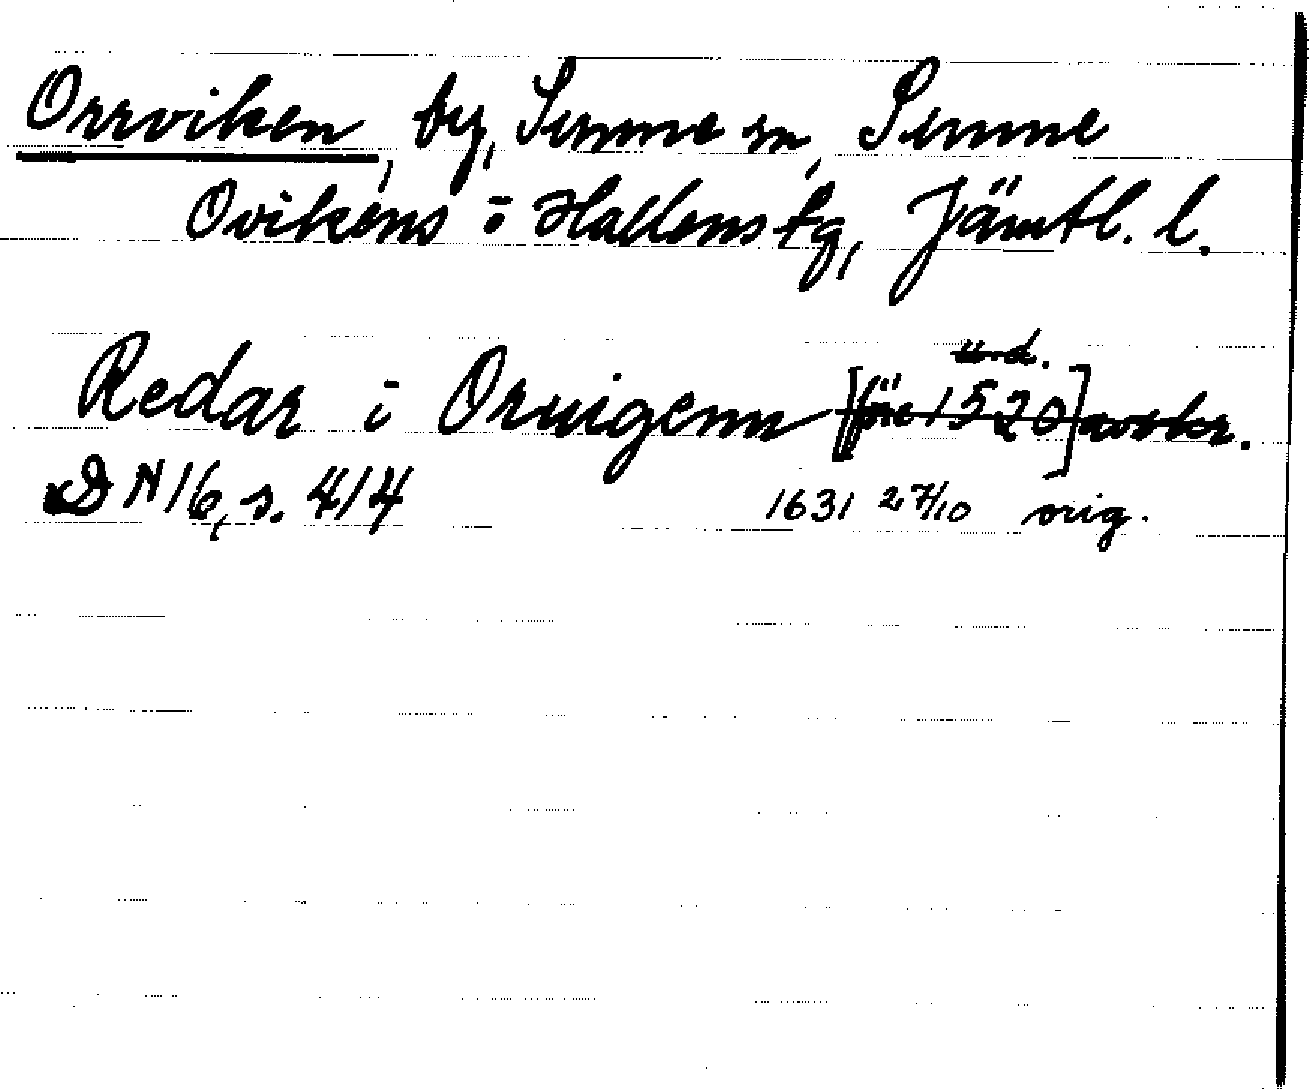 Orrviken, by, Sunne sn, Sunne
Ovikens o Hallens tg, Jämtl. l.
und.
Redar i Oruigenn [före 1520] avskr.
DN 16, s. 414 1631 27/10 orig.